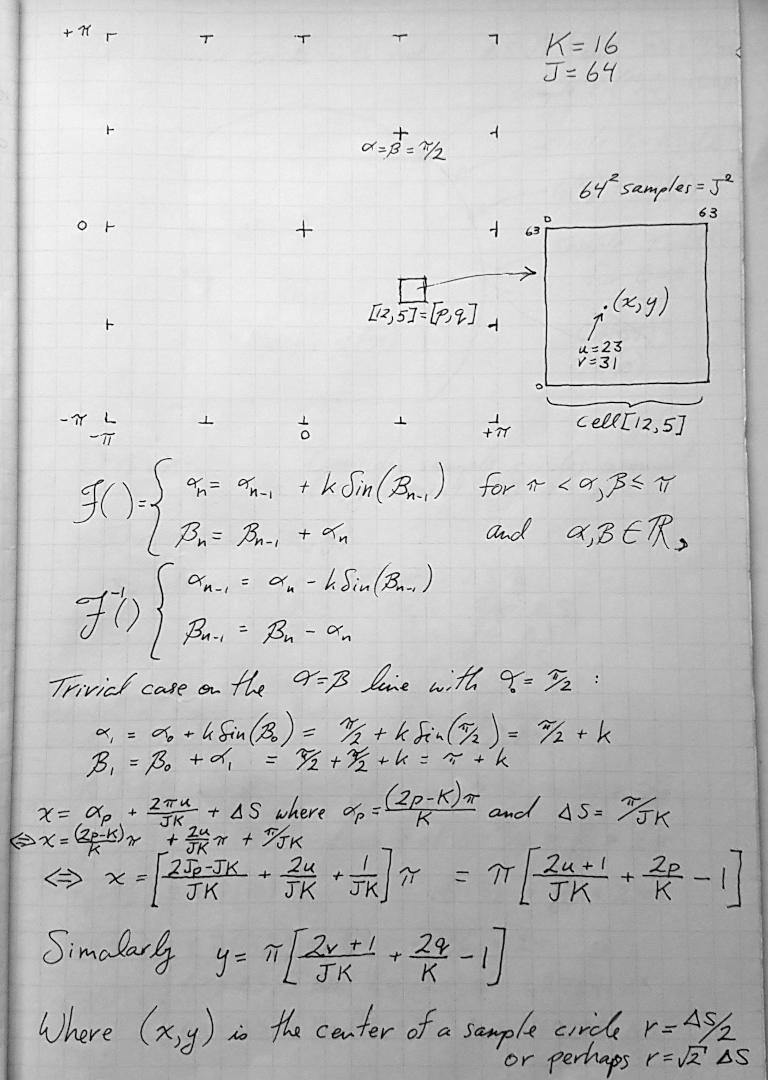 +π
K=16
J=64
α=β=π/2
64² samples=J²
0
63
0
63
(x,y)
[12,5]=[p,q]
u=23
v=31
0
-π
-π
0
+π
cell[12,5]
F()={ αₙ = αₙ₋₁ + k Sin(βₙ₋₁) for π < α,β ≤ π
βₙ = βₙ₋₁ + αₙ and α,β ∈ ℝ,
F⁻¹() { αₙ₋₁ = αₙ - k Sin(βₙ₋₁)
βₙ₋₁ = βₙ - αₙ
Trivial case on the α=β line with α₀ = π/2 :
α₁ = α₀ + k Sin(β₀) = π/2 + k Sin(π/2) = π/2 + k
β₁ = β₀ + α₁ = π/2 + π/2 + k = π + k
x = αₚ + 2πu/JK + ΔS where αₚ = (2p-K)π/K and ΔS = π/JK
⇔ x = (2p-K)/K π + 2u/JK π + π/JK
⇔ x = [2Jp-JK/JK + 2u/JK + 1/JK] π = π[2u+1/JK + 2p/K - 1]
Simalarly y = π[2v+1/JK + 2q/K - 1]
Where (x,y) is the center of a sample circle r = ΔS/2
or perhaps r = √2 ΔS